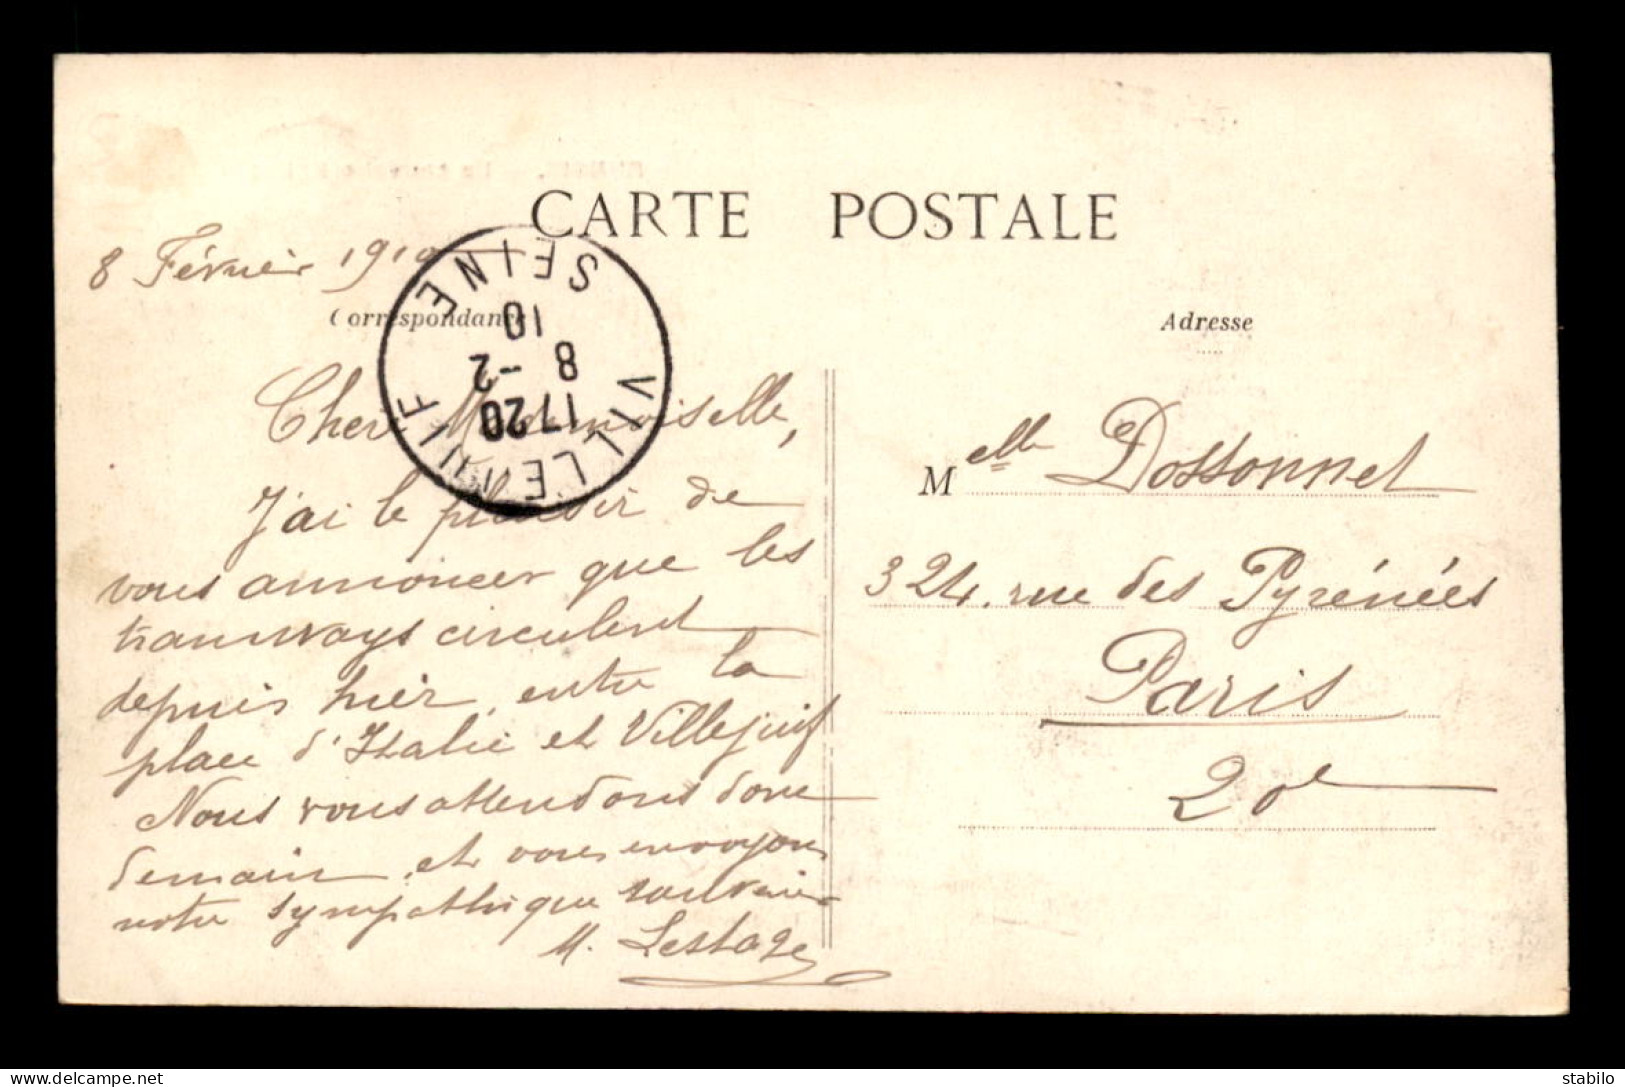 CARTE POSTALE
8 Février 1910
Correspondance
Adresse
VILLEJUIF
SEINE
1720
8 -2
10
Cher Mademoiselle,
J'ai le plaisir de
vous annoncer que les
tramways circulent
depuis hier, entre la
place d'Italie et Villejuif
Nous vous attendons donc
demain, et vous envoyons
notre sympathique souvenir
M. Lestage
Melle Dossonnet
324, rue des Pyrénées
Paris
20e
stabilo